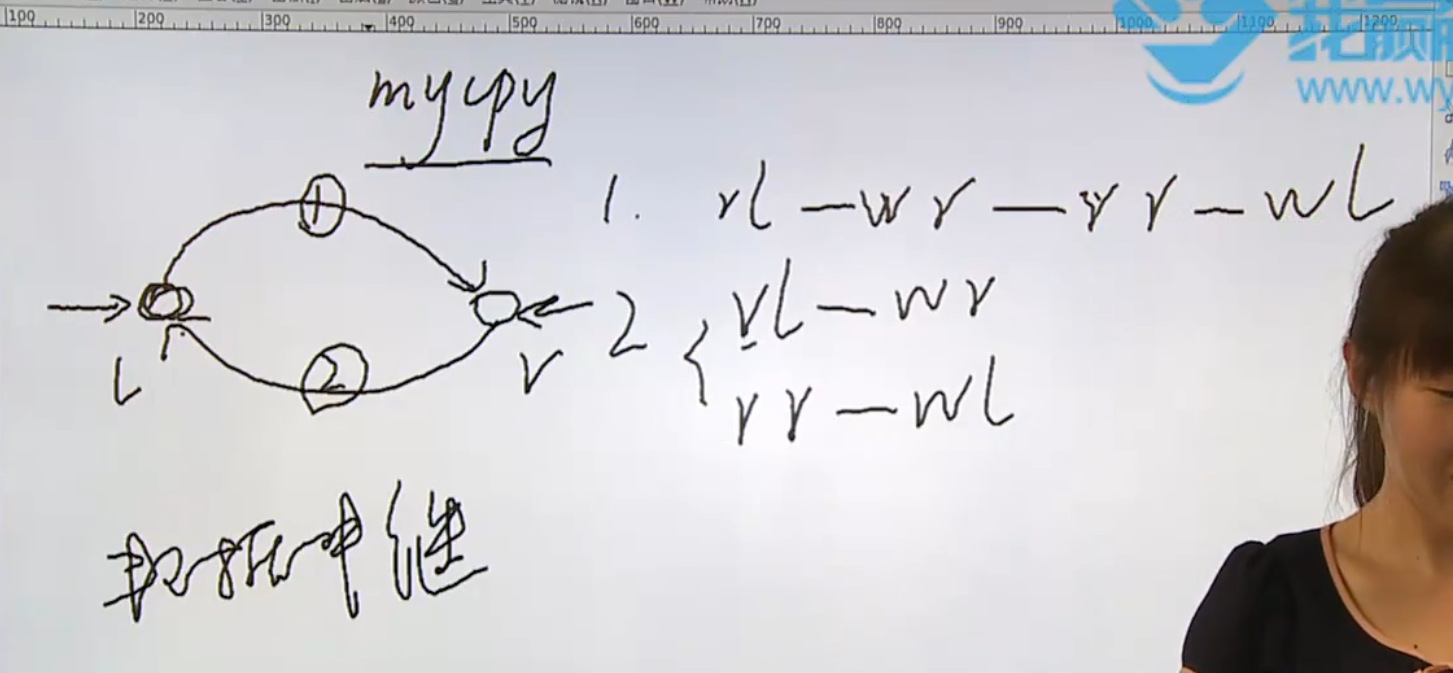 100 200 300 400 500 600 700 800 900 1000 1100 1200
www.wy
mycpy
1. rl — wr — rr — wl
① 
2 { rl — wr
rr — wl
l r
②
数据中继